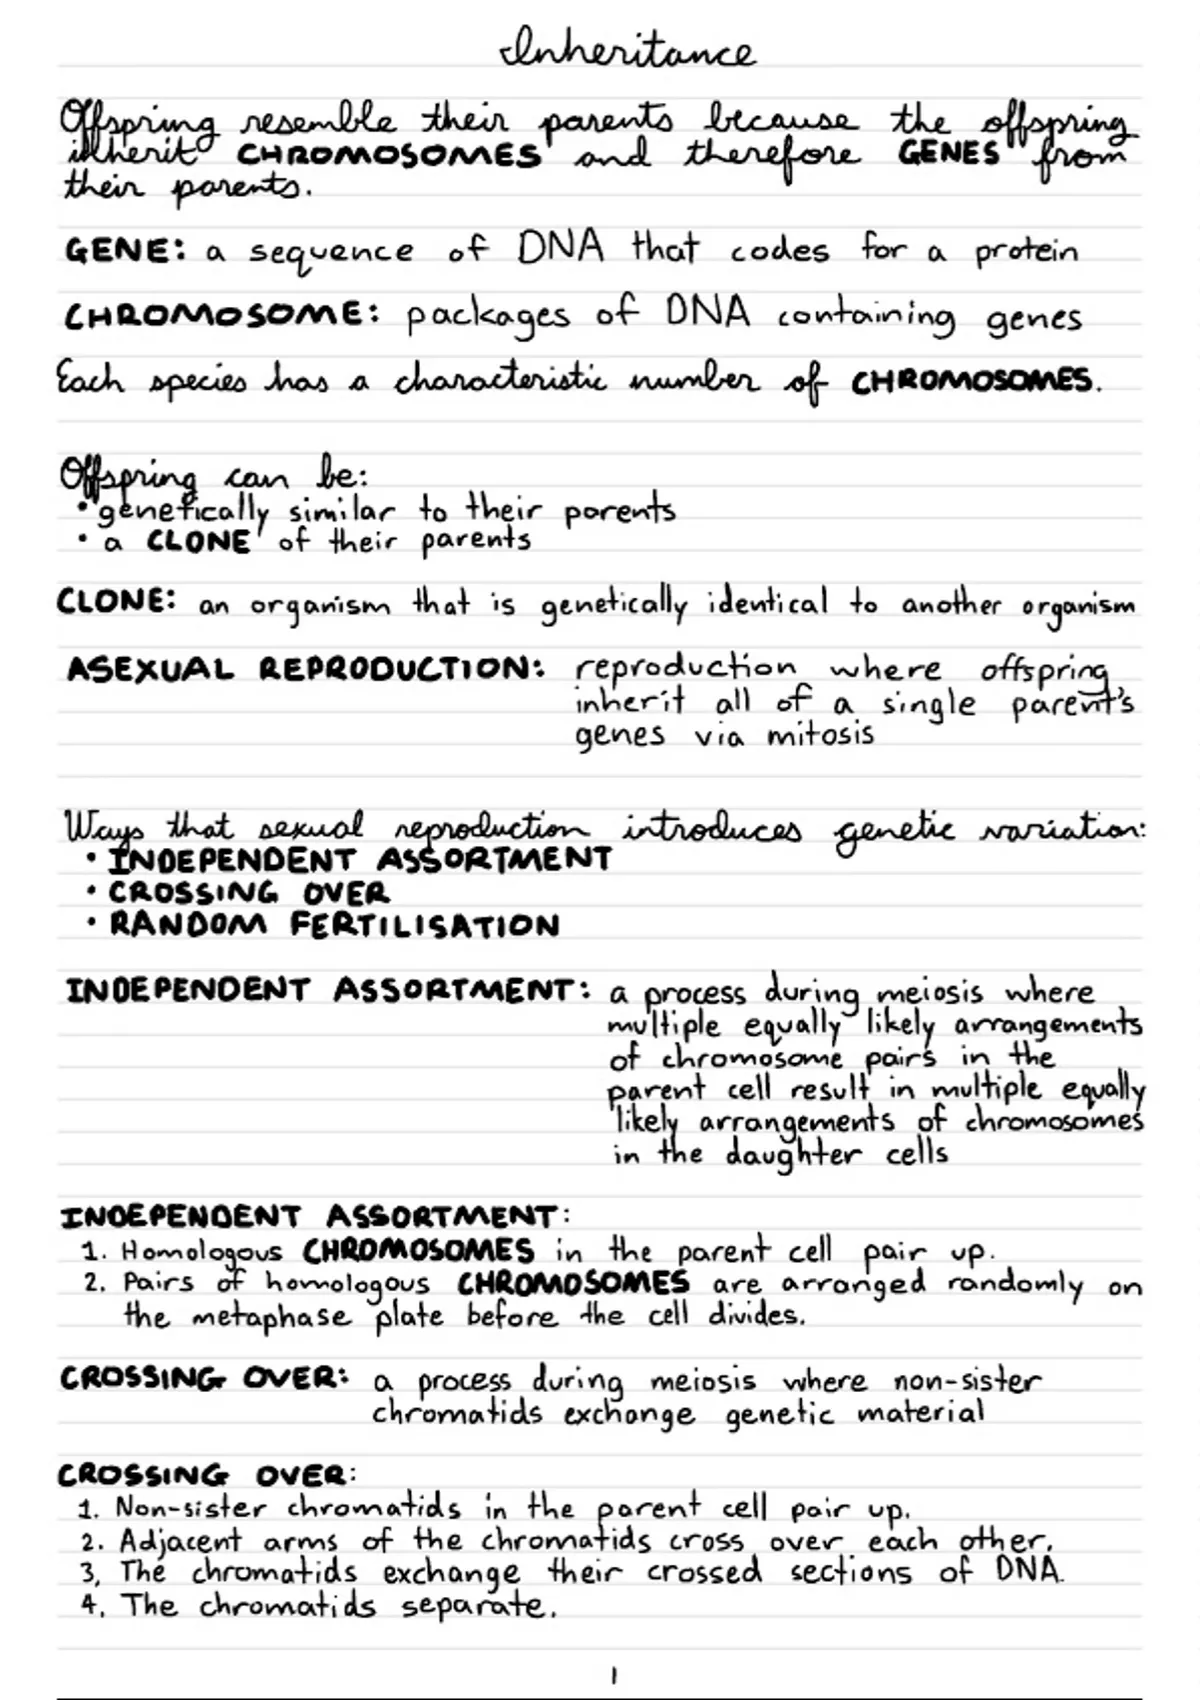 Inheritance
Offspring resemble their parents because the offspring
inherit CHROMOSOMES and therefore GENES from
their parents.
GENE: a sequence of DNA that codes for a protein
CHROMOSOME: packages of DNA containing genes
Each species has a characteristic number of CHROMOSOMES.
Offspring can be:
• genetically similar to their parents
• a CLONE of their parents
CLONE: an organism that is genetically identical to another organism
ASEXUAL REPRODUCTION: reproduction where offspring
inherit all of a single parent's
genes via mitosis
Ways that sexual reproduction introduces genetic variation:
• INDEPENDENT ASSORTMENT
• CROSSING OVER
• RANDOM FERTILISATION
INDEPENDENT ASSORTMENT: a process during meiosis where
multiple equally likely arrangements
of chromosome pairs in the
parent cell result in multiple equally
likely arrangements of chromosomes
in the daughter cells
INDEPENDENT ASSORTMENT:
1. Homologous CHROMOSOMES in the parent cell pair up.
2. Pairs of homologous CHROMOSOMES are arranged randomly on
the metaphase plate before the cell divides.
CROSSING OVER: a process during meiosis where non-sister
chromatids exchange genetic material
CROSSING OVER:
1. Non-sister chromatids in the parent cell pair up.
2. Adjacent arms of the chromatids cross over each other.
3. The chromatids exchange their crossed sections of DNA.
4. The chromatids separate.
1